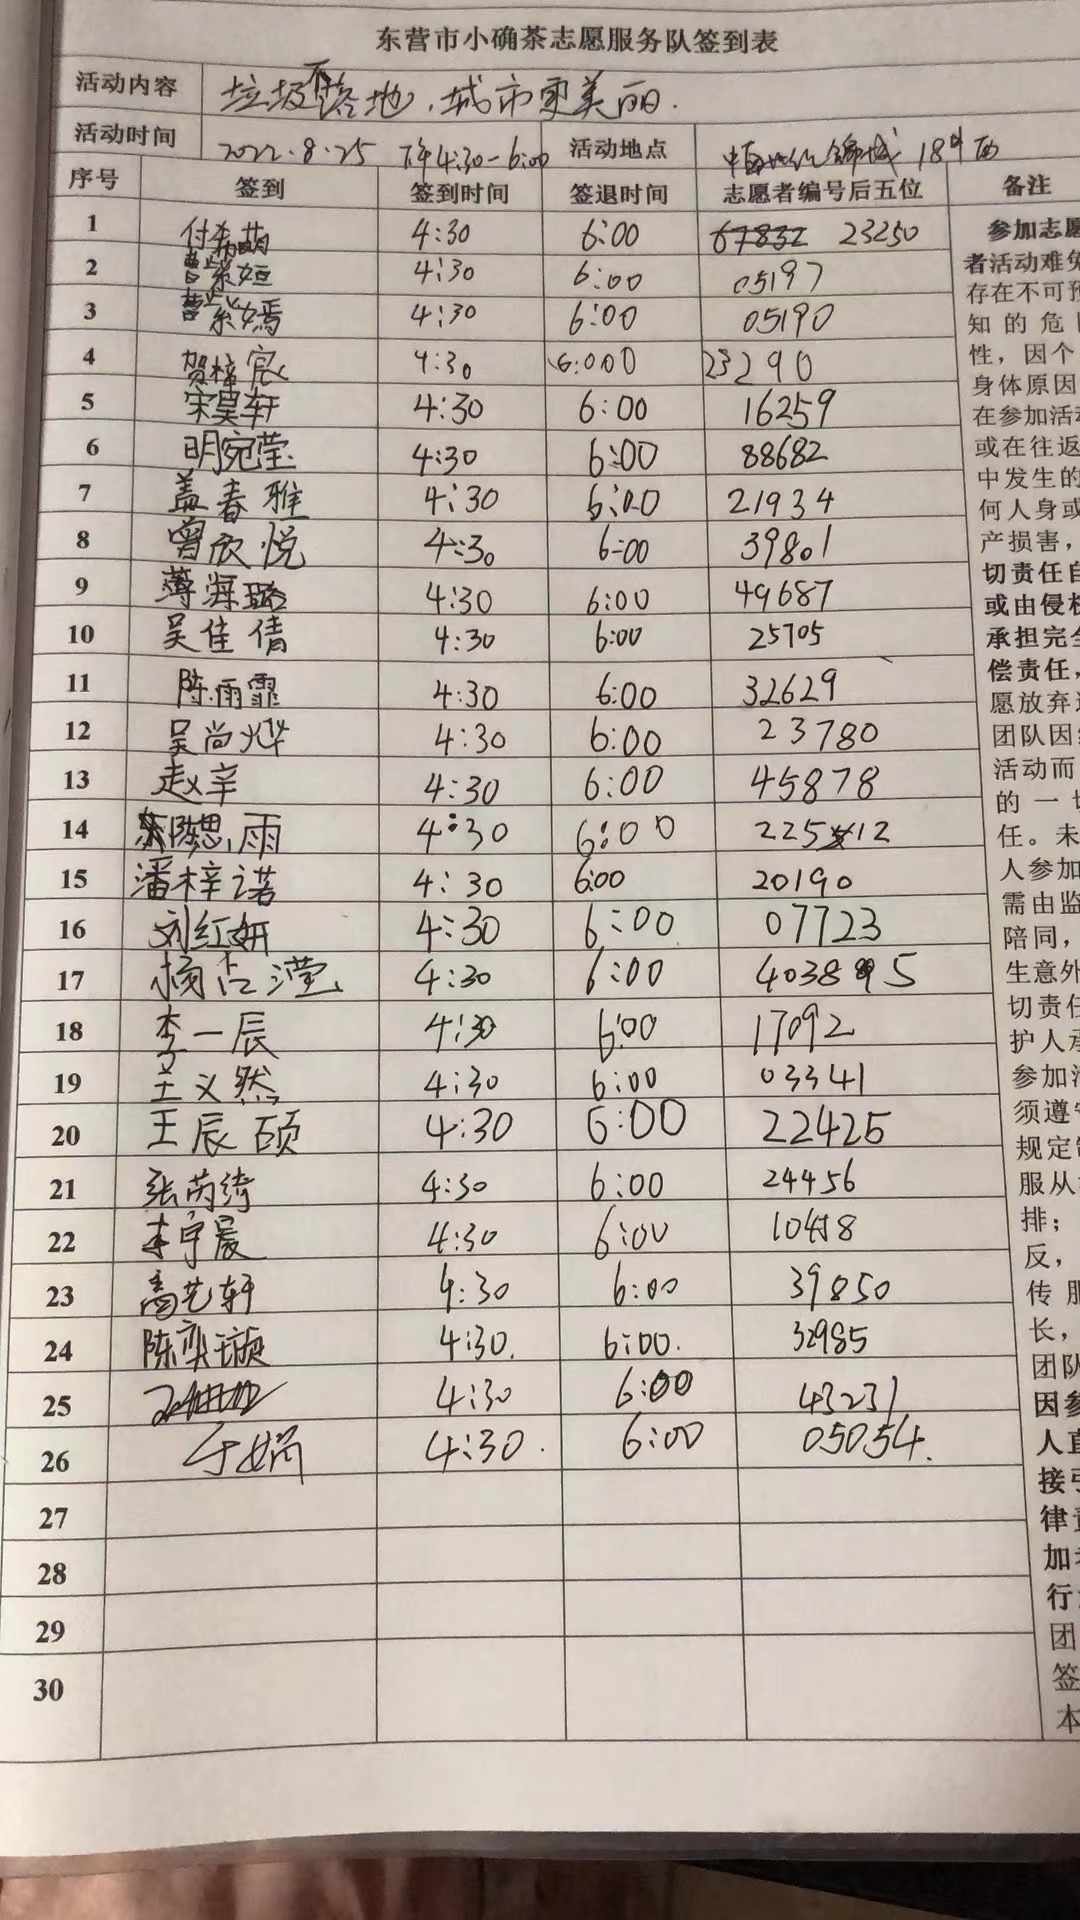 东营市小确茶志愿服务队签到表
活动内容 垃圾不落地,城市更美丽.
活动时间 2022.8.25 下午4:30-6:00 活动地点 锦城 18#西
序号 签到 签到时间 签退时间 志愿者编号后五位 备注
1 付希萌 4:30 6:00 67832 23250
2 曹紫姮 4:30 6:00 05197
3 曹紫嫣 4:30 6:00 05190
4 贺梓宸 4:30 6:000 23290
5 宋昊轩 4:30 6:00 16259
6 明宛莹 4:30 6:00 88682
7 盖春雅 4:30 6:00 21934
8 曾欣悦 4:30 6:00 39801
9 薄淏璐 4:30 6:00 49687
10 吴佳倩 4:30 6:00 25705
11 陈雨霏 4:30 6:00 32629
12 吴尚烨 4:30 6:00 23780
13 赵辛 4:30 6:00 45878
14 陈思雨 4:30 6:00 22512
15 潘梓诺 4:30 6:00 20190
16 刘红妍 4:30 6:00 07723
17 杨占滢 4:30 6:00 403895
18 李一辰 4:30 6:00 17092
19 王义然 4:30 6:00 03341
20 王辰硕 4:30 6:00 22425
21 张芮绮 4:30 6:00 24456
22 李宇晨 4:30 6:00 10458
23 高艺轩 4:30 6:00 39850
24 陈奕璇 4:30. 6:00. 32985
25 4:30 6:00 43231
26 于娟 4:30. 6:00 05054.
27
28
29
30
参加志愿
者活动难免
存在不可预
知的危
性，因个
身体原因
在参加活动
或在往返
中发生的
何人身或
产损害，
切责任自
或由侵权
承担完全
偿责任，
愿放弃
团队因
活动而
的一切
任。未
人参加
需由监
陪同，
生意外
切责任
护人承
参加活
须遵守
规定
服从
排；
反，
传服
长，
团队
因参
人直
接引
律责
加
行
团
签
本